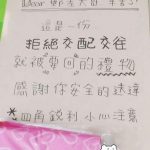 這是一份
拒絕交配交往
就被要回的禮物
感謝你安全的送達
四角銳利 小心注意